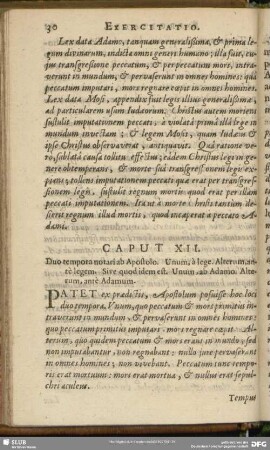 30 EXERCITATIO.
Lex data Adamo, tanquam generalissima, & prima le-
gum divinarum, indicta omni generi humano; illa fuit, cu-
jus transgressione peccatum, & per peccatum mors, intra-
verunt in mundum, & pervaserunt in omnes homines: quâ
peccatum imputari, mors regnare cœpit in omnes homines.
Lex data Mosi, appendix fuit legis illius generalissimæ,
ad particularem gentem Judæorum. Christus autem moriens
sustulit imputationem peccati, à violatâ primâ illâ lege in
mundum invectam; & legem Mosis, quam Judæi &
ipse Christus observaverat, antiquavit. Quia ratione ve-
ro, sublatâ causâ tollitur effectus; eâdem Christus legem ge-
nere obtemperans, & morte suâ transgressionem legis ex-
pians, tollens imputationem peccati quæ erat per transgres-
sionem legis, sustulit regnum mortis quod erat per illam
peccati imputationem. Ita ut à morte Christi tantùm de-
sierit regnum illud mortis, quod inceperat à peccato A-
dami.
CAPUT XII.
Duo tempora notari ab Apostolo. Unum, à lege. Alterum, an-
tè legem. Sive quod idem est. Unum ab Adamo. Alte-
rum, ante Adamum.
PATET ex prædictis, Apostolum posuisse hoc loco
duo tempora. Unum, quo peccatum & mors primitùs in-
traverunt in mundum, & pervaserunt in omnes homines:
quo peccatum primitùs imputari, mors regnare cœpit. Al-
terum, quo quidem peccatum & mors erant in mundo; sed
non imputabantur, non regnabant; nulla jure pervaserant
in omnes homines; non vivebant. Peccatum tunc tempo-
ris erat mortuum: mors erat mortua, & nullus erat sepul-
chri aculeus.
Tempus
SLUB
DFG